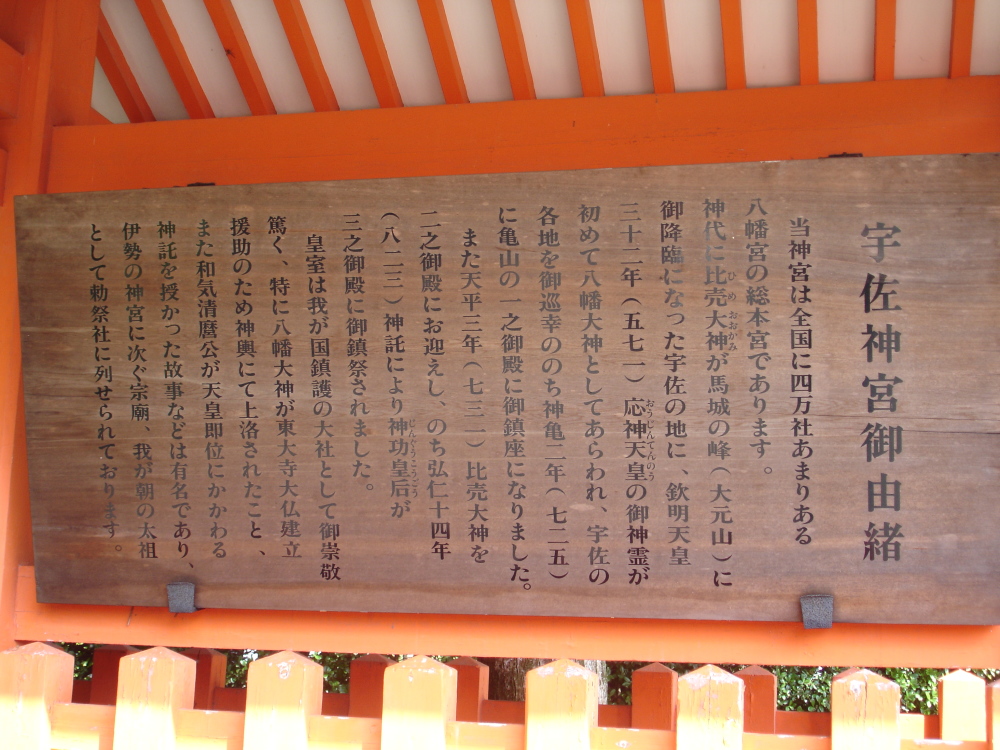 宇佐神宮御由緒
当神宮は全国に四万社あまりある
八幡宮の総本宮であります。
神代に比売大神が馬城の峰（大元山）に
ひめおおがみ
御降臨になった宇佐の地に、欽明天皇
三十二年（五七一）応神天皇の御神霊が
おうじんてんのう
初めて八幡大神としてあらわれ、宇佐の
各地を御巡幸ののち神亀二年（七二五）
に亀山の一之御殿に御鎮座になりました。
また天平三年（七三一）比売大神を
二之御殿にお迎えし、のち弘仁十四年
（八二三）神託により神功皇后が
じんぐうこうごう
三之御殿に御鎮祭されました。
皇室は我が国鎮護の大社として御崇敬
篤く、特に八幡大神が東大寺大仏建立
援助のため神輿にて上洛されたこと、
また和気清麿公が天皇即位にかかわる
神託を授かった故事などは有名であり、
伊勢の神宮に次ぐ宗廟、我が朝の太祖
として勅祭社に列せられております。